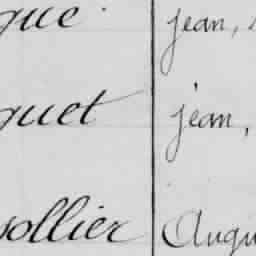 gue jean,
guet jean,
sollier Augu